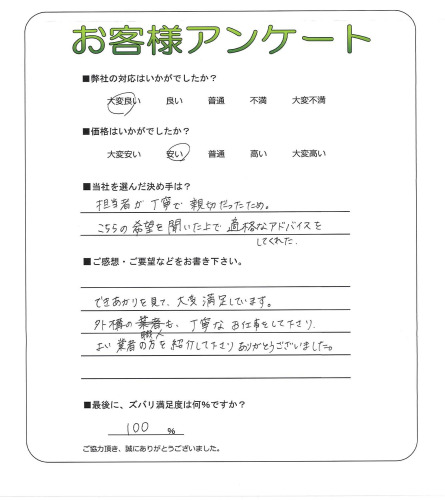 お客様アンケート
■弊社の対応はいかがでしたか？
大変良い 良い 普通 不満 大変不満
■価格はいかがでしたか？
大変安い 安い 普通 高い 大変高い
■当社を選んだ決め手は？
担当者が丁寧で親切だったため。
こちらの希望を聞いた上で適格なアドバイスを
してくれた.
■ご感想・ご要望などをお書き下さい。
できあがりを見て、大変満足しています。
外構の業者も、丁寧なお仕事をして下さり.
職人
よい業者の方を紹介して下さりありがとうございました。
■最後に、ズバリ満足度は何%ですか？
100 %
ご協力頂き、誠にありがとうございました。